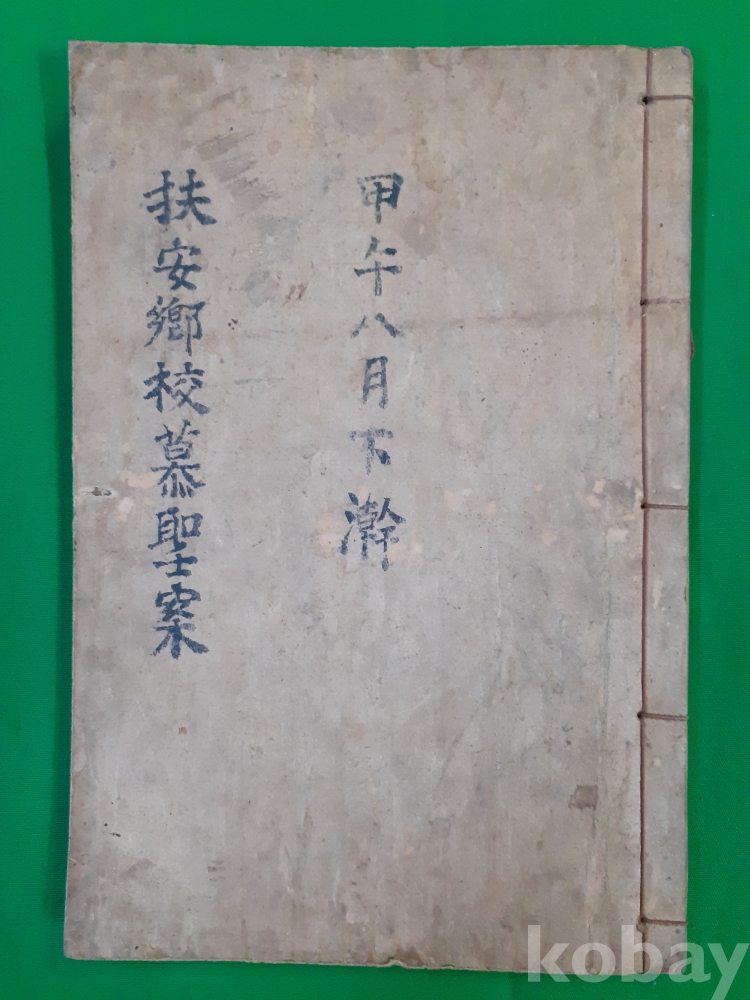 甲午八月下澣
扶安鄉校慕聖案
kobay